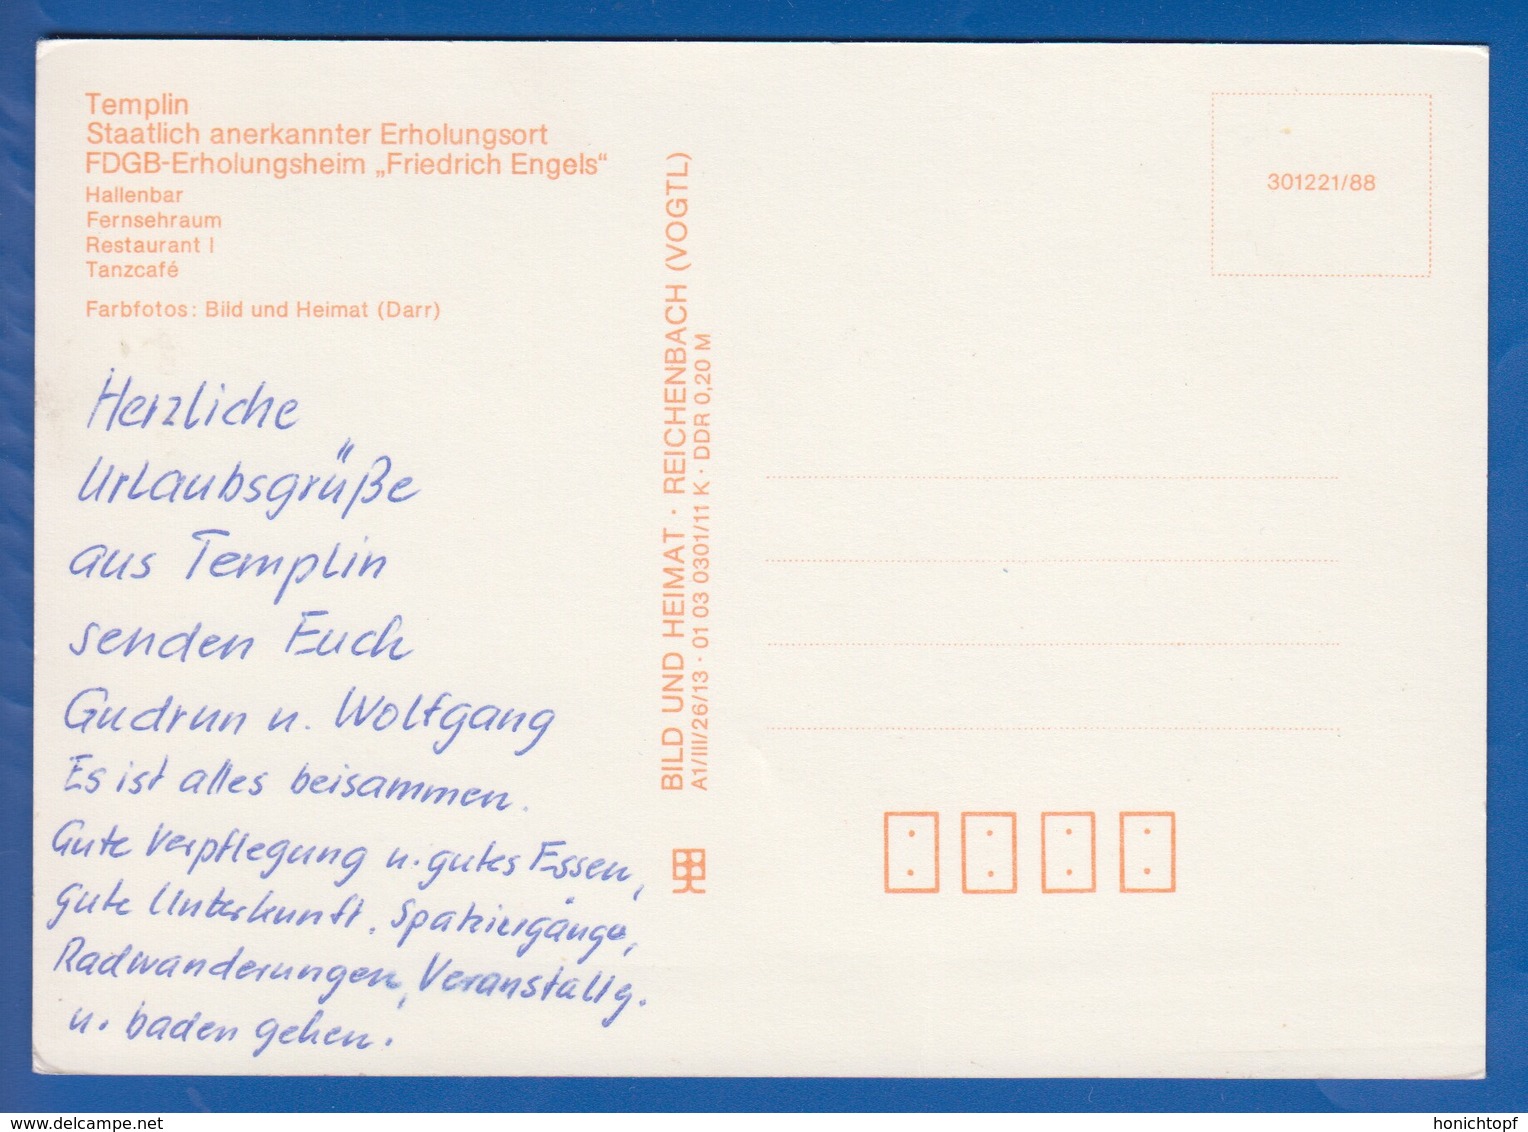 Templin
Staatlich anerkannter Erholungsort
FDGB-Erholungsheim „Friedrich Engels“
Hallenbar
Fernsehraum
Restaurant I
Tanzcafé
Farbfotos: Bild und Heimat (Darr)
Herzliche
Urlaubsgrüße
aus Templin
senden Euch
Gudrun u. Wolfgang
Es ist alles beisammen.
Gute Verpflegung u. gutes Essen,
gute Unterkunft. Spaziergänge,
Radwanderungen, Veranstallg.
u. baden gehen.
BILD UND HEIMAT · REICHENBACH (VOGTL)
A1/III/26/13 · 01 03 0301/11 K · DDR 0,20 M
301221/88
www.delcampe.net
honichtopf